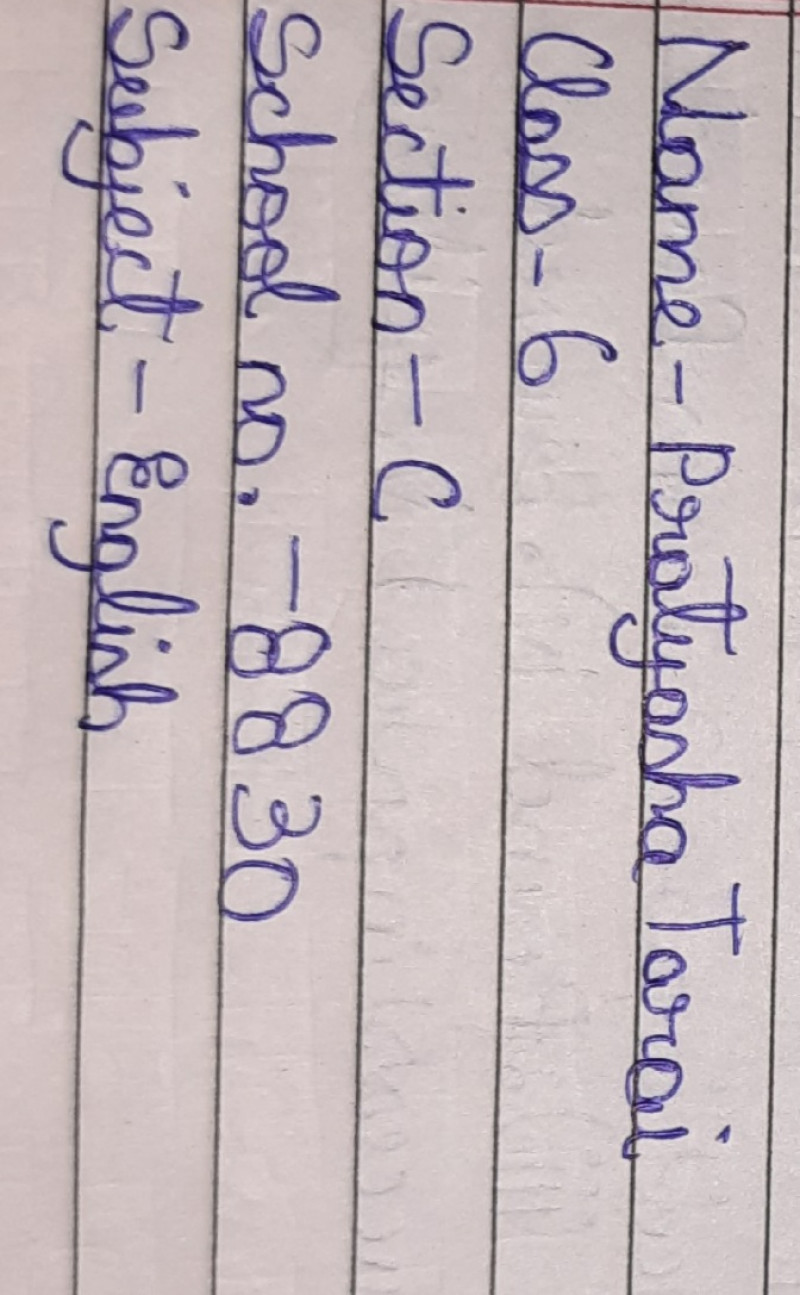 Name - Pratyasha Tarai
Class - 6
Section - C
School no. - 8830
Subject - English